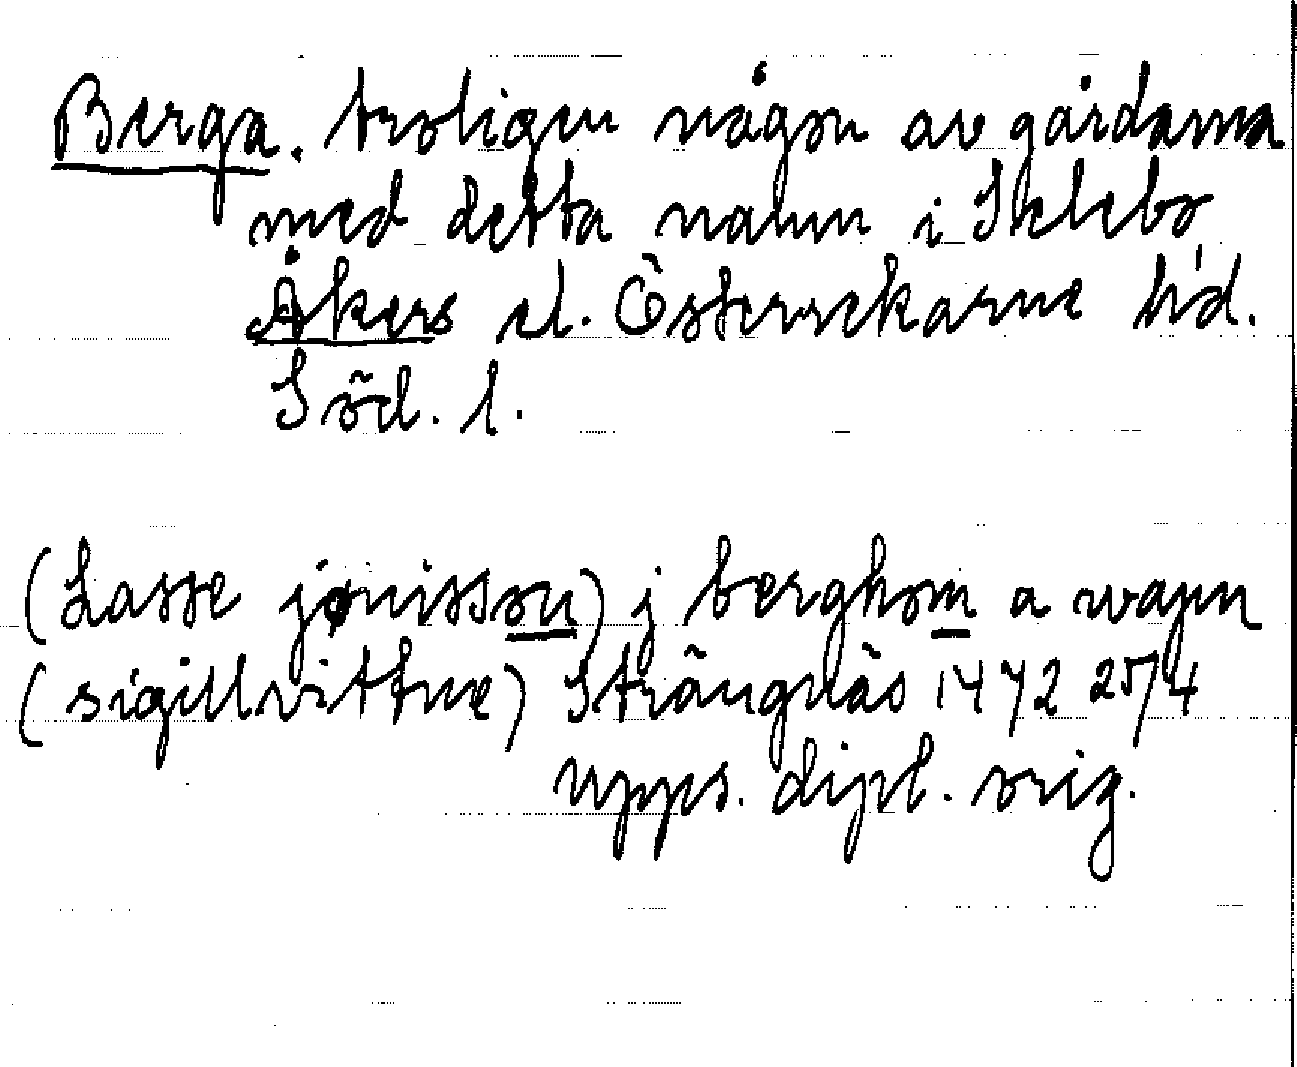 Berga. troligen någon av gårdarna
med detta namn i Sklebo,
Åkers el. Österrekarne hd.
Söd. l.
(Lasse jønisson) j berghom a wapn
(sigillvittne) Strängnäs 1472 25/4
Upps. dipl. orig.